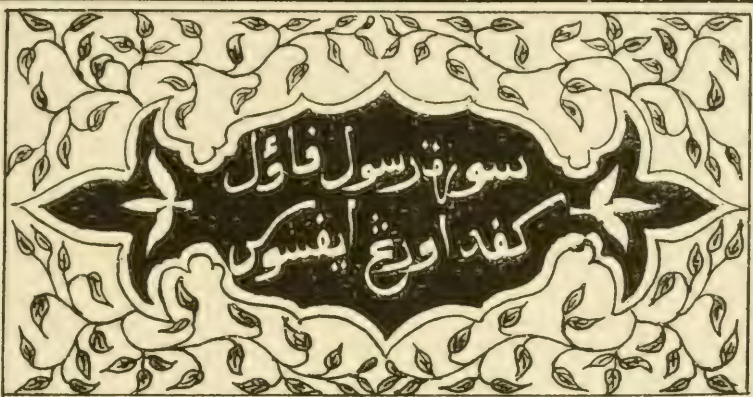 سورة رسول فاؤل
کفد اورڠ ايفسوس